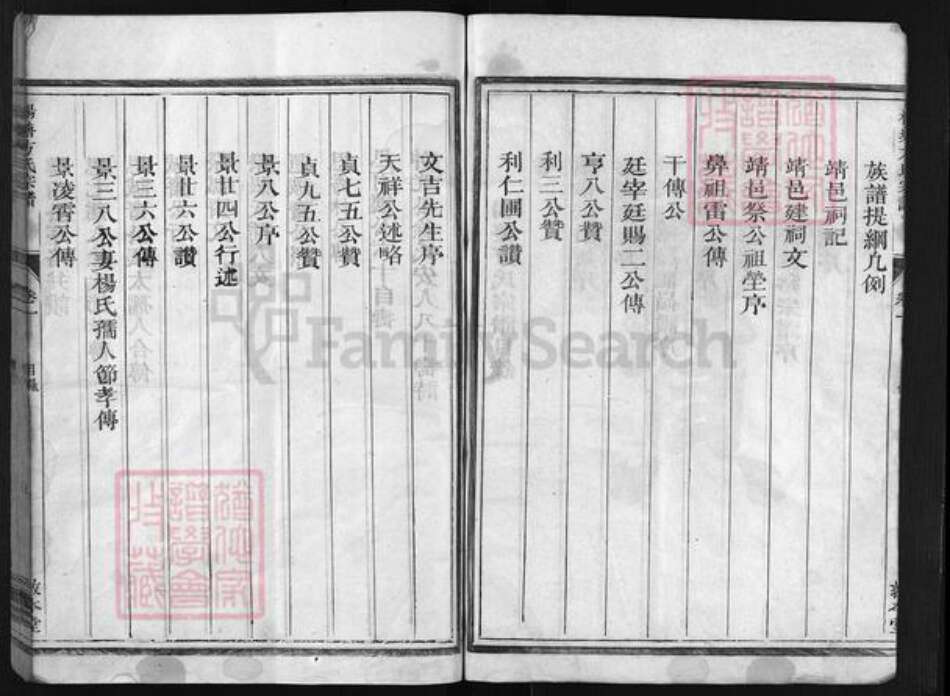 族譜提綱凡例
靖邑祠記
靖邑建祠文
靖邑祭公祖塋序
鼻祖雷公傳
干傳公
廷宰廷賜二公傳
亨八公贊
利三公贊
利仁圃公讚
文吉先生序
天祥公述略
貞七五公贊
貞九五公贊
景八公序
景廿四公行述
景廿六公讚
景三六公傳
景三八公妻楊氏孺人節孝傳
景凌霄公傳
方氏宗譜
卷一
目錄
敦本堂
FamilySearch